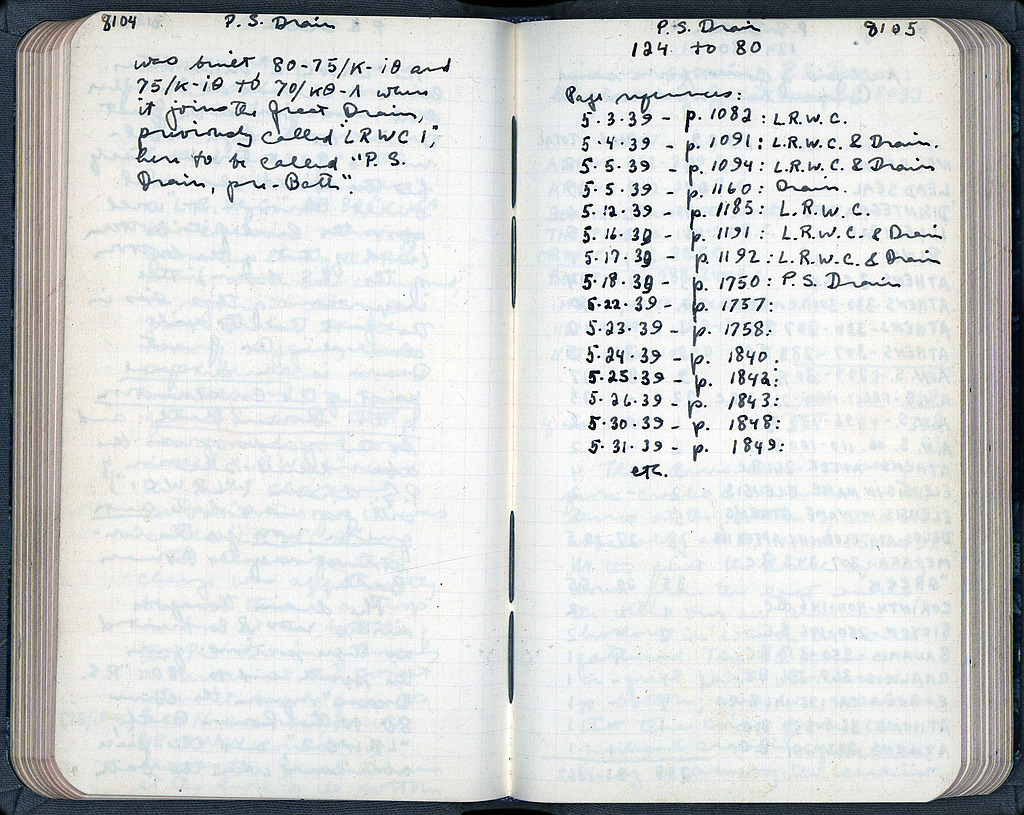 8104
P. S. Drain
was built 80-75/K-ΙΘ and
75/K-ΙΘ to 70/ΚΘ-Λ when
it joins the great Drain,
previously called "LRWC 1",
here to be called "P. S.
Drain, pre-Bath".
P. S. Drain
8105
124 to 80
Page references:
5.3.39 - p. 1082: L.R.W.C.
5.4.39 - p. 1091: L.R.W.C. & Drain.
5.5.39 - p. 1094: L.R.W.C. & Drain
5.5.39 - p. 1160: Drain.
5.12.39 - p. 1185: L.R.W.C.
5.16.39 - p. 1191: L.R.W.C. & Drain
5.17.39 - p. 1192: L.R.W.C. & Drain
5.18.39 - p. 1750: P.S. Drain
5.22.39 - p. 1757:
5.23.39 - p. 1758:
5.24.39 - p. 1840.
5.25.39 - p. 1842:
5.26.39 - p. 1843:
5.30.39 - p. 1848:
5.31.39 - p. 1849:
etc.